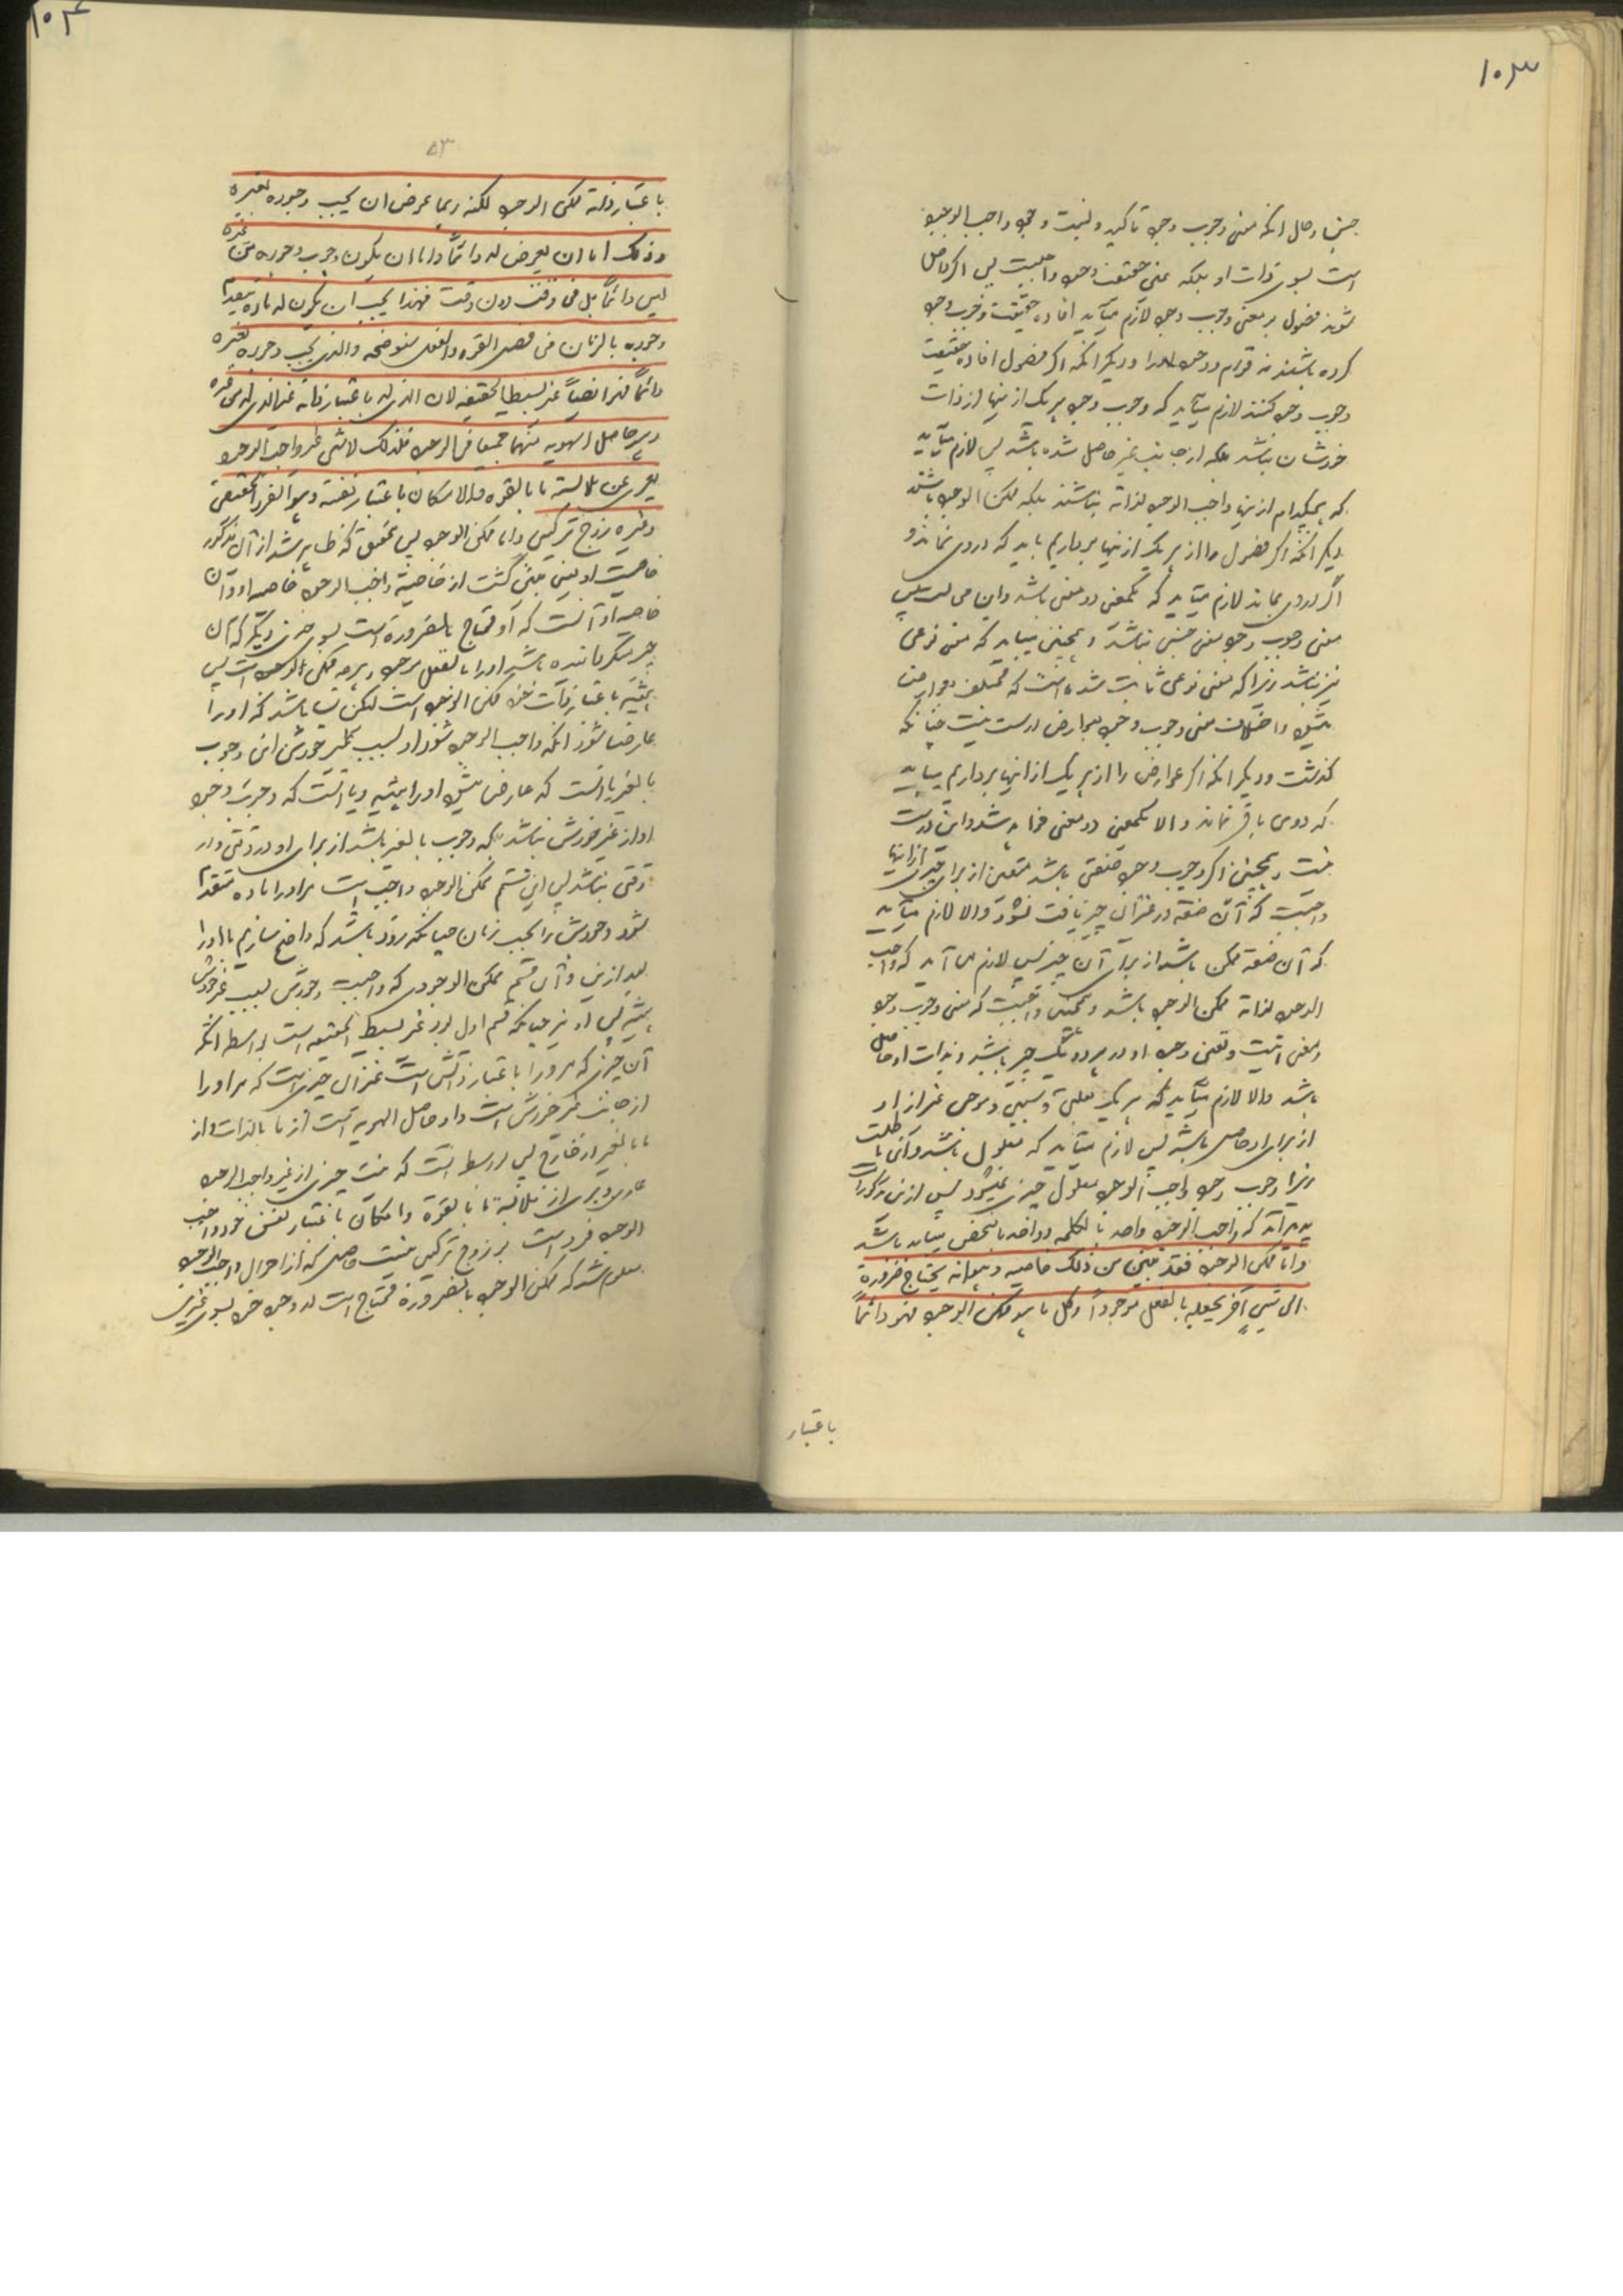 ۱۰۳
است بسوی ذات او بلکه عین حقیقت وجود واجبست پس اگر داخل
شوند فصول بر معنی وجوب وجود لازم میآید افاده حقیقت وجوب وجود
کرده باشند نه قوام وجود او را و دیگر آنکه اگر فصول افاده حقیقت
وجوب وجود کنند لازم میآید که وجوب وجود هر یک ازینها از ذات
خودشان نباشد بلکه از جانب غیر حاصل شده باشد پس لازم میآید
که هیچکدام ازینها واجب الوجود لذاته نباشند بلکه ممکن الوجود باشند
دیگر آنکه اگر فصول را از هر یک ازینها برداریم باید که دوی نماند و
اگر دوی بماند لازم میآید که یکمعنی دو معنی باشد و این محالست پس
معنی وجوب وجود معنی جنسی نباشد و همچنین میباید که معنی نوعی
نیز نباشد زیرا که معنی نوعی ثابت شده است که مختلف بعوارض
میشود و اختلاف معنی وجوب وجود بعوارض درست نیست چنانکه
گذشت و دیگر آنکه اگر عوارض را از هر یک از اینها برداریم میباید
که دوی باقی نماند و الا یکمعنی دو معنی خواهد شد و این درست
نیست و همچنین اگر وجوب وجود صفتی باشد متعین از برای چیزی از اینها
واجبست که آن صفة در غیر آن چیز یافت نشود و الا لازم میآید
که آن صفة ممکن باشد از برای آن چیز پس لازم می آید که واجب
الوجود لذاته ممکن الوجود باشد و همچنین واجبست که معنی وجوب وجود
و معنی انیت و تعین وجود او در هر دو یک چیز باشد و بذات او حاصل
باشد و الا لازم میآید که هر یک بعلتی و سببی و موجبی غیر از او
از برای او حاصل باشد پس لازم میآید که معلول باشد و آن باطلست
زیرا وجوب وجود واجب الوجود معلول چیزی نمیشود پس ازین مذکورات
پدید آمد که واجب الوجود واحد بالکلمه و واحد بالشخص میباید باشد
و اما ممکن الوجود فقد تبین من ذلک خاصیه و هو انه یحتاج ضرورة
الی شیئ آخر یجعله بالفعل موجودا و کل ما هو ممکن الوجود فهو دائما
باعتبار
۱۰۴
۵۳
باعتبار ذاته ممکن الوجود لکنه ربما عرض ان یجب وجوده بغیره
و ذلک اما ان یعرض له دائما و اما ان یکون وجوب وجوده من غیره
لیس دائما بل فی وقت دون وقت فهذا یجب ان یکون له مادة تتقدم
وجوده بالزمان فی فصل القوه و الفعل سنوضحه و الذی یجب وجوده بغیره
دائما فهو ایضا غیر بسیط الحقیقه لان الذی له باعتبار ذاته غیر الذی له من غیره
و هو حاصل الهویه منهما جمیعا فی الوجود فلذلک لا شئی غیر واجب الوجود
یعری عن ملابسة ما بالقوه و الامکان باعتبار نفسه و هو الفرد الحقیقی
و غیره زوج ترکیبی و اما ممکن الوجود پس بتحقیق که ظاهر شد از آن مذکور
خاصیت او یعنی مبین گشت از خاصیة واجب الوجود خاصه او و آن
خاصه او آنست که او محتاج بالضرورة است بسوی چیزی دیگر که آن
چیز دیگر گرداننده باشد او را بالفعل موجود و هر چه ممکن الوجود است پس
همیشه باعتبار ذات خود ممکن الوجود است لیکن بسا باشد که او را
عارض شود آنکه واجب الوجود شود او بسبب غیر خودش این وجوب
بالغیر یا آنست که عارض میشود او را همیشه و یا آنست که وجوب وجود
او از غیر خودش نباشد همیشه بلکه وجوب بالغیر باشد از برای او در وقتی و در
وقتی نباشد پس این قسم ممکن الوجود واجب است مر او را ماده متقدم
شود وجودش را بحسب زمان چنانکه زود باشد که واضح سازیم ما او را
بعد ازین و آن قسم ممکن الوجودی که واجبست وجودش بسبب غیر خودش
همیشه پس او نیز چنانکه قسم اول بود غیر بسیط الحقیقه است بواسطه آنکه
آن چیزی که مر او را باعتبار ذاتش است غیر آن چیزی است که مر او را
از جانب غیر خودش است و او حاصل الهویه است از ما بالذات و از
ما بالغیر از خارج پس ازین واسطه است که نیست چیزی از غیر واجب الوجود
عاری و بری از ملابسة ما بالقوة و امکان باعتبار نفس خود و واجب
الوجود فرد است و زوج ترکیبی نیست حاصل که از احوال واجب الوجود
معلوم شد که ممکن الوجود بالضرورة محتاج است در وجود خود بسوی غیری